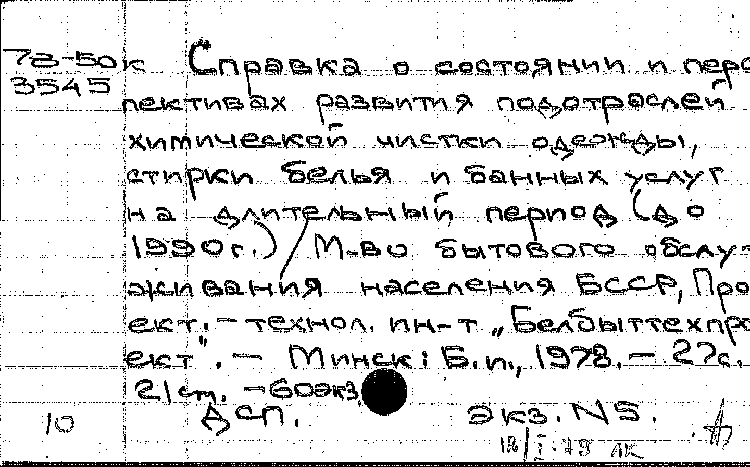 78-50к Справка о состоянии и перс
3545 пективах развития подотраслей
химической чистки одежды,
стирки белья и банных услуг
на длительный период (до
1990г.) / М-во бытового обслу-
живания населения БССР, Про
ект.-технол. ин-т „Белбыттехпро
ект". - Минск: Б.и., 1978. - 27с.
21 см. - 60экз.
ДСП. экз. N5.
10 18/I-79